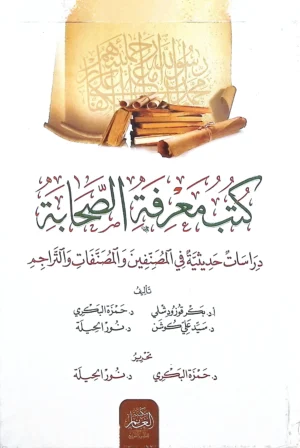 كُتُبُ مَعْرِفَةِ الصَّحَابَةِ
دِرَاسَاتٌ حَدِيثِيَّةٌ فِي المُصَنِّفِينَ وَالمُصَنَّفَاتِ وَالتَّرَاجِمِ
تأليف
أ.د. بكر قوزودشلي د. حمزة البكري
د. سيد علي كوشن د. نور الحيلة
تحرير
د. حمزة البكري د. نور الحيلة